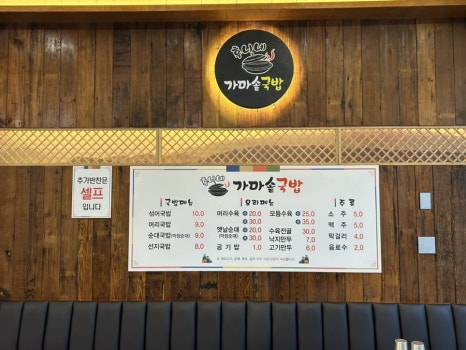 가마솥국밥
추가반찬은
셀프
입니다
가마솥국밥
국밥메뉴
섞어국밥 10,0
머리국밥 9,0
순대국밥(막창순대) 9,0
선지국밥 8,0
요리메뉴
머리수육 소 20,0
대 30,0
옛날순대 소 20,0
(막창순대) 대 30,0
공기밥 1,0
모듬수육 소 25,0
대 35,0
수육전골 30,0
낙지만두 7,0
고기만두 6,0
주류
소주 5,0
맥주 5,0
막걸리 4,0
음료수 2,0